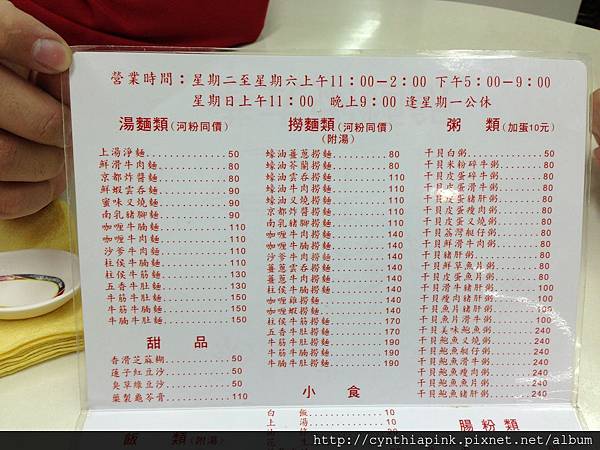 營業時間：星期二至星期六上午11：00－2：00 下午5：00－9：00
星期日上午11：00 晚上9：00 逢星期一公休
湯麵類(河粉同價)
上湯淨麵 50
鮮滑牛肉麵 80
京都炸醬麵 80
鮮蝦雲吞麵 90
蜜味叉燒麵 90
南乳豬腳麵 90
咖喱牛腩麵 110
咖喱牛肉麵 110
沙爹牛肉麵 110
柱侯牛腩麵 110
柱侯牛筋麵 130
五香牛肚麵 130
牛筋牛肚麵 150
牛腩牛筋麵 150
牛腩牛肚麵 150
甜 品
香滑芝麻糊 50
蓮子紅豆沙 50
臭草綠豆沙 50
藥製龜苓膏 110
飯 類(附湯)
撈麵類(河粉同價)
(附湯)
蠔油薑蔥撈麵 80
蠔油芥蘭撈麵 80
蠔油雲吞撈麵 110
蠔油牛肉撈麵 110
蠔油叉燒撈麵 110
京都炸醬撈麵 110
南乳豬腳撈麵 110
咖喱牛肉撈麵 140
咖喱牛腩撈麵 140
沙爹牛肉撈麵 140
薑蔥雲吞撈麵 140
薑蔥牛肉撈麵 140
柱侯牛腩撈麵 140
咖喱雞撈麵 140
柱侯牛筋撈麵 170
五香牛肚撈麵 170
牛筋牛肚撈麵 190
牛腩牛筋撈麵 190
牛腩牛肚撈麵 190
小 食
白飯 10
上湯 10
粥 類(加蛋10元)
干貝白粥 50
干貝米粉碎牛粥 80
干貝皮蛋碎牛粥 80
干貝皮蛋滑牛粥 80
干貝皮蛋豬肝粥 80
干貝皮蛋瘦肉粥 80
干貝皮蛋叉燒粥 80
干貝荔灣艇仔粥 80
干貝鮮滑牛肉粥 80
干貝豬肝粥 80
干貝鮮草魚片粥 80
干貝皮蛋魚片粥 80
干貝滑牛豬肝粥 100
干貝瘦肉豬肝粥 100
干貝魚片豬肝粥 100
干貝魚片滑牛粥 100
干貝美味鮑魚粥 240
干貝鮑魚叉燒粥 240
干貝鮑魚艇仔粥 240
干貝鮑魚滑牛粥 240
干貝鮑魚瘦肉粥 240
干貝鮑魚魚片粥 240
干貝鮑魚豬肝粥 240
腸粉類
http://cynthiapink.pixnet.net/album